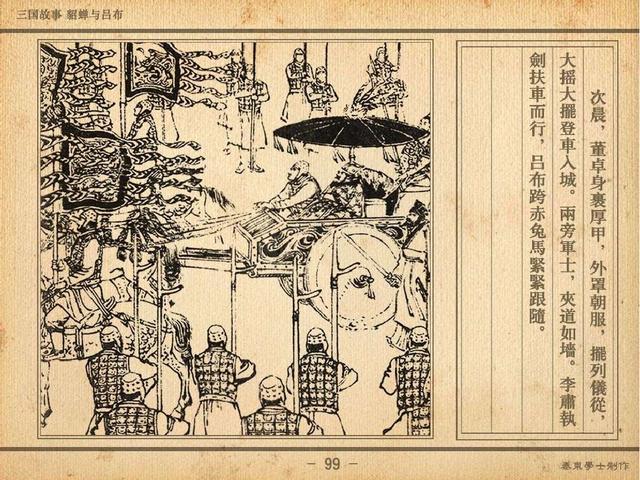 三国故事 貂蝉与吕布
次晨，董卓身裹厚甲，外罩朝服，擺列儀從，
大摇大擺登車入城。兩旁軍士，夾道如墻。李肅執
劍扶車而行，吕布跨赤兔馬緊緊跟隨。
- 99 -
泰東學士制作